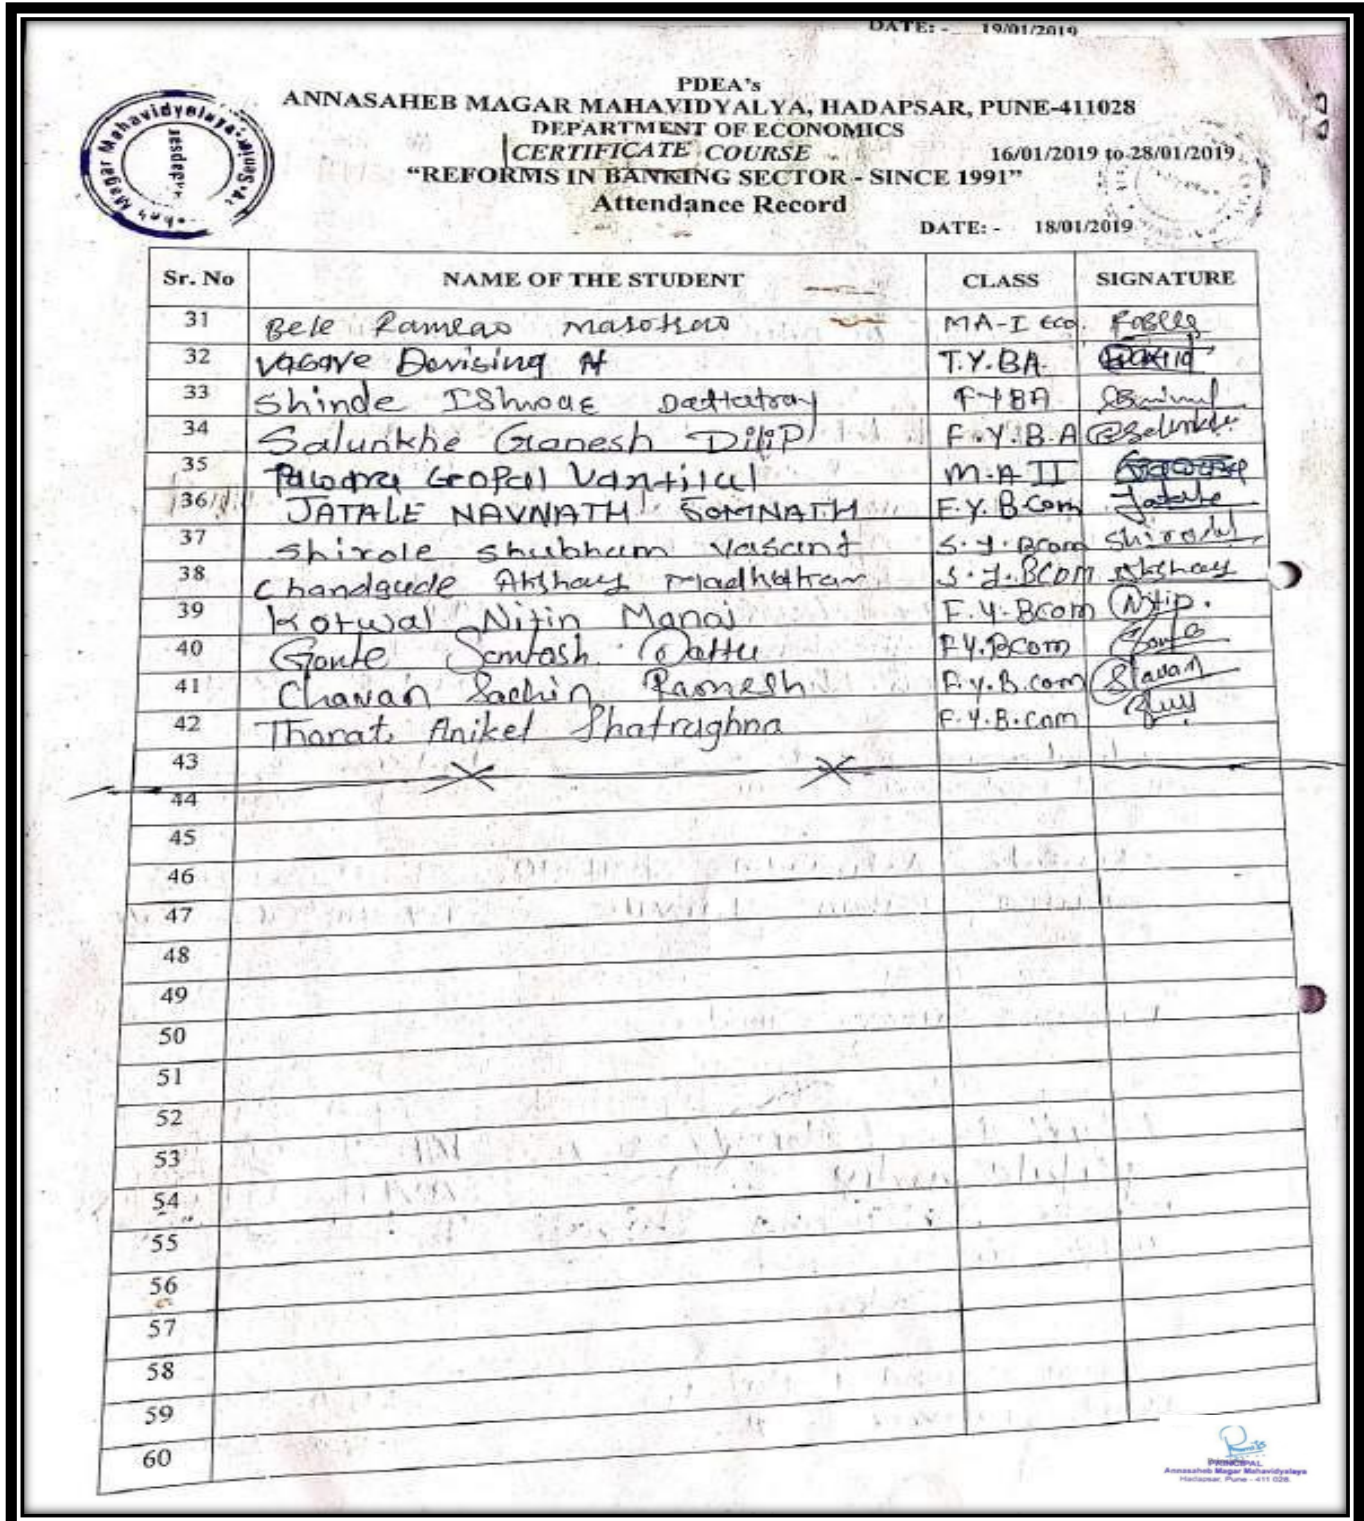 DATE: - 19/01/2019
PDEA's
ANNASAHEB MAGAR MAHAVIDYALYA, HADAPSAR, PUNE-411028
DEPARTMENT OF ECONOMICS
CERTIFICATE COURSE 16/01/2019 to 28/01/2019
"REFORMS IN BANKING SECTOR - SINCE 1991"
Attendance Record
DATE: - 18/01/2019
Sr. No NAME OF THE STUDENT CLASS SIGNATURE
31 Bele Ramrao Marotrao MA-I eco.
32 Vasave Devising N T.Y.BA.
33 Shinde IShwar Dattatray F-YBA
34 Salunkhe Ganesh DiliP F.Y.B.A GSalunkhe
35 Pawara Gopal Vantilal M.A II
36 JATALE NAVNATH SOMNATH F.Y.B.Com Jatale
37 Shirole Shubham Vasant S.Y.Bcom Shirole
38 Chandgude Akshay Madhukar S.Y.BCOM Akshay
39 Kotwal Nitin Manoj F.Y.Bcom Nitin.
40 Gonte Santosh Dattu F.Y.Bcom
41 Chavan Sachin Ramesh F.y.B.com
42 Thorat Aniket Shatrughna F.Y.B.com
43
44
45
46
47
48
49
50
51
52
53
54
55
56
57
58
59
60
PRINCIPAL
Annasaheb Magar Mahavidyalaya
Hadapsar, Pune - 411 028.